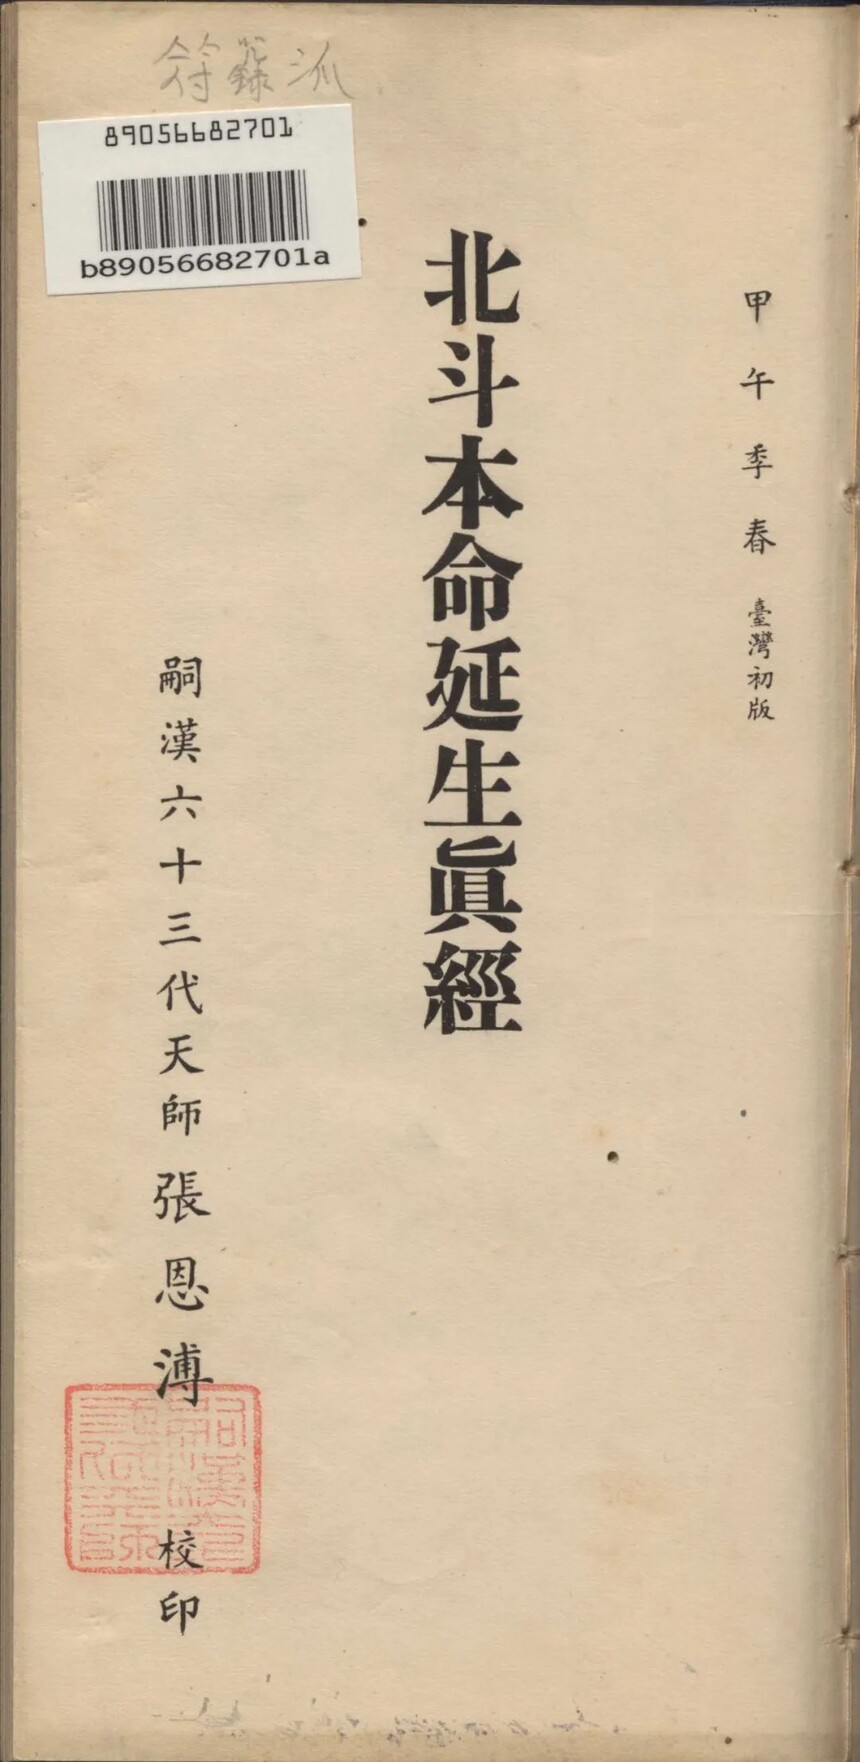 甲午季春 臺灣初版
北斗本命延生眞經
嗣漢六十三代天師張恩溥 校印
符籙派
89056682701
b89056682701a